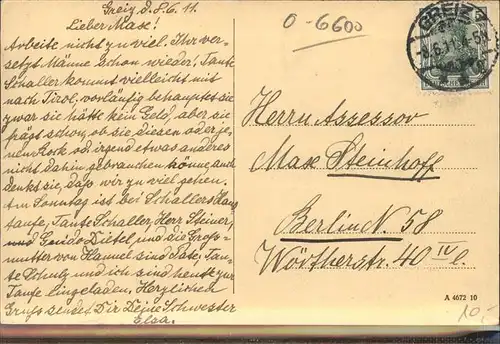 Greiz d. 8. 6. 11.
Lieber Maxe!
Arbeite nicht zu viel. Ihr ver-
setzt Männe schon wieder! Tante
Schaller kommt vielleicht mit
nach Tirol, vorläufig behauptet sie
zwar sie hätte kein Geld, aber sie
frägt schon, ob sie diesen oder je-
nen Rock od. irgend etwas anderes
nicht dahin gebrauchen könne auch
denkt sie, dass wir zu viel gehen.
Am Sonntag ist bei Schallers Haus
taufe, Tante Schaller, Herr Steiner,
und Guido Dietel, und die Gross-
mutter von Hannel sind Pate. Tan-
te Schulz und ich sind heute zur
Taufe eingeladen. Herzlichen
Gruss sendet Dir Deine Schwester
Elsa.
0-6600
GREIZ
Herrn Assessor
Max Steinhoff
Berlin N. 58
Wörtherstr. 40 IV l.
A 4672 10
10,-